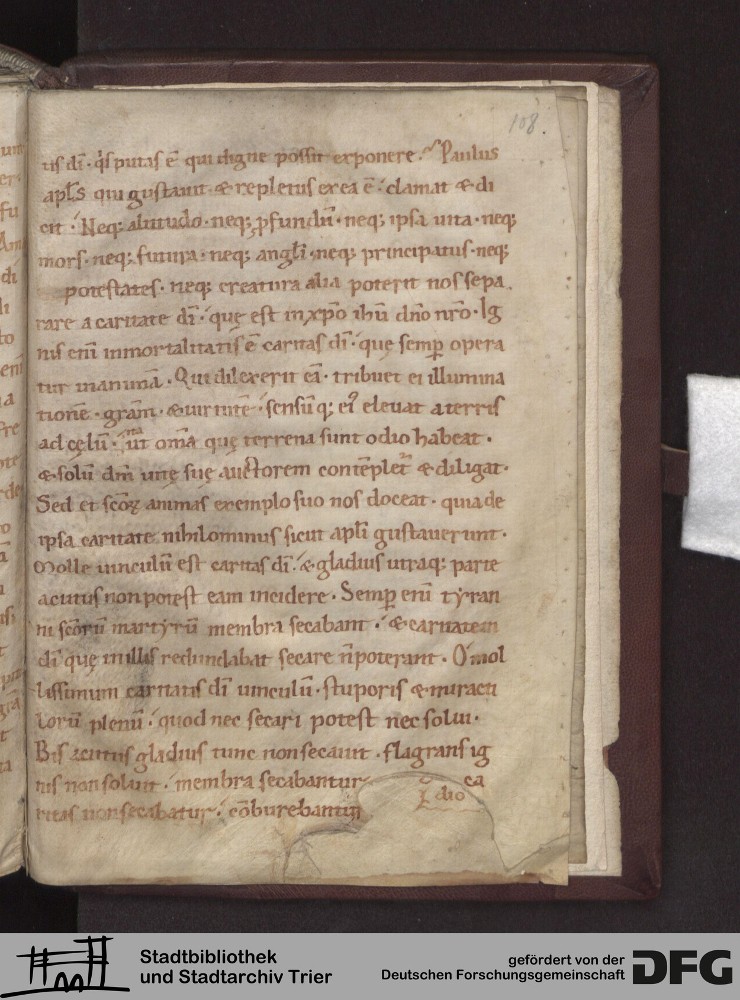 108.
tis dī · q̇s putas ē qui digne possit exponere · Paulus
apl̄s qui gustauit · & repletus ex ea ē · clamat & di
cit · Neq; altitudo · neq; ꝓfundū · neq; ipsa uita · neq;
mors · neq; futura · neq; angl̄i · neq; principatus · neq;
potestates · neq; creatura alia poterit nos sepa
rare a caritate dī · quę est in xp̄o ihū dn̄o nr̄o · Ig
nis enī inmortalitatis ē caritas dī · quę semꝑ opera
tur in animā · Qui dilexerit eā · tribuet ei illumina
tionē · grām · & uirtutē · sensūq; eiꝰ eleuat a terris
ad cęlū · ut om̄a quę terrena sunt odio habeat ·
& solū dm̄ uitę suę auctorem contēplet & diligat ·
Sed et scōꝝ animas exemplo suo nos doceat · quia de
ipsa caritate nihilominus sicut apl̄i gustauerunt ·
Molle uinculū est caritas dī · & gladius utraq; parte
acutus non potest eam incidere · Semꝑ enī tyran
ni scōrū martyrū membra secabant · & caritatem
dī quę in illis redundabat secare n̄ poterant · O mol
lissimum caritatis dī uinculū · stuporis & miracu
lorū plenū · quod nec secari potest nec solui ·
Bis acutus gladius tunc non secauit · flagrans ig
nis non soluit · membra secabantur ca
ritas non secabatur · cōburebantur
dio
Stadtbibliothek
und Stadtarchiv Trier
gefördert von der
Deutschen Forschungsgemeinschaft
DFG